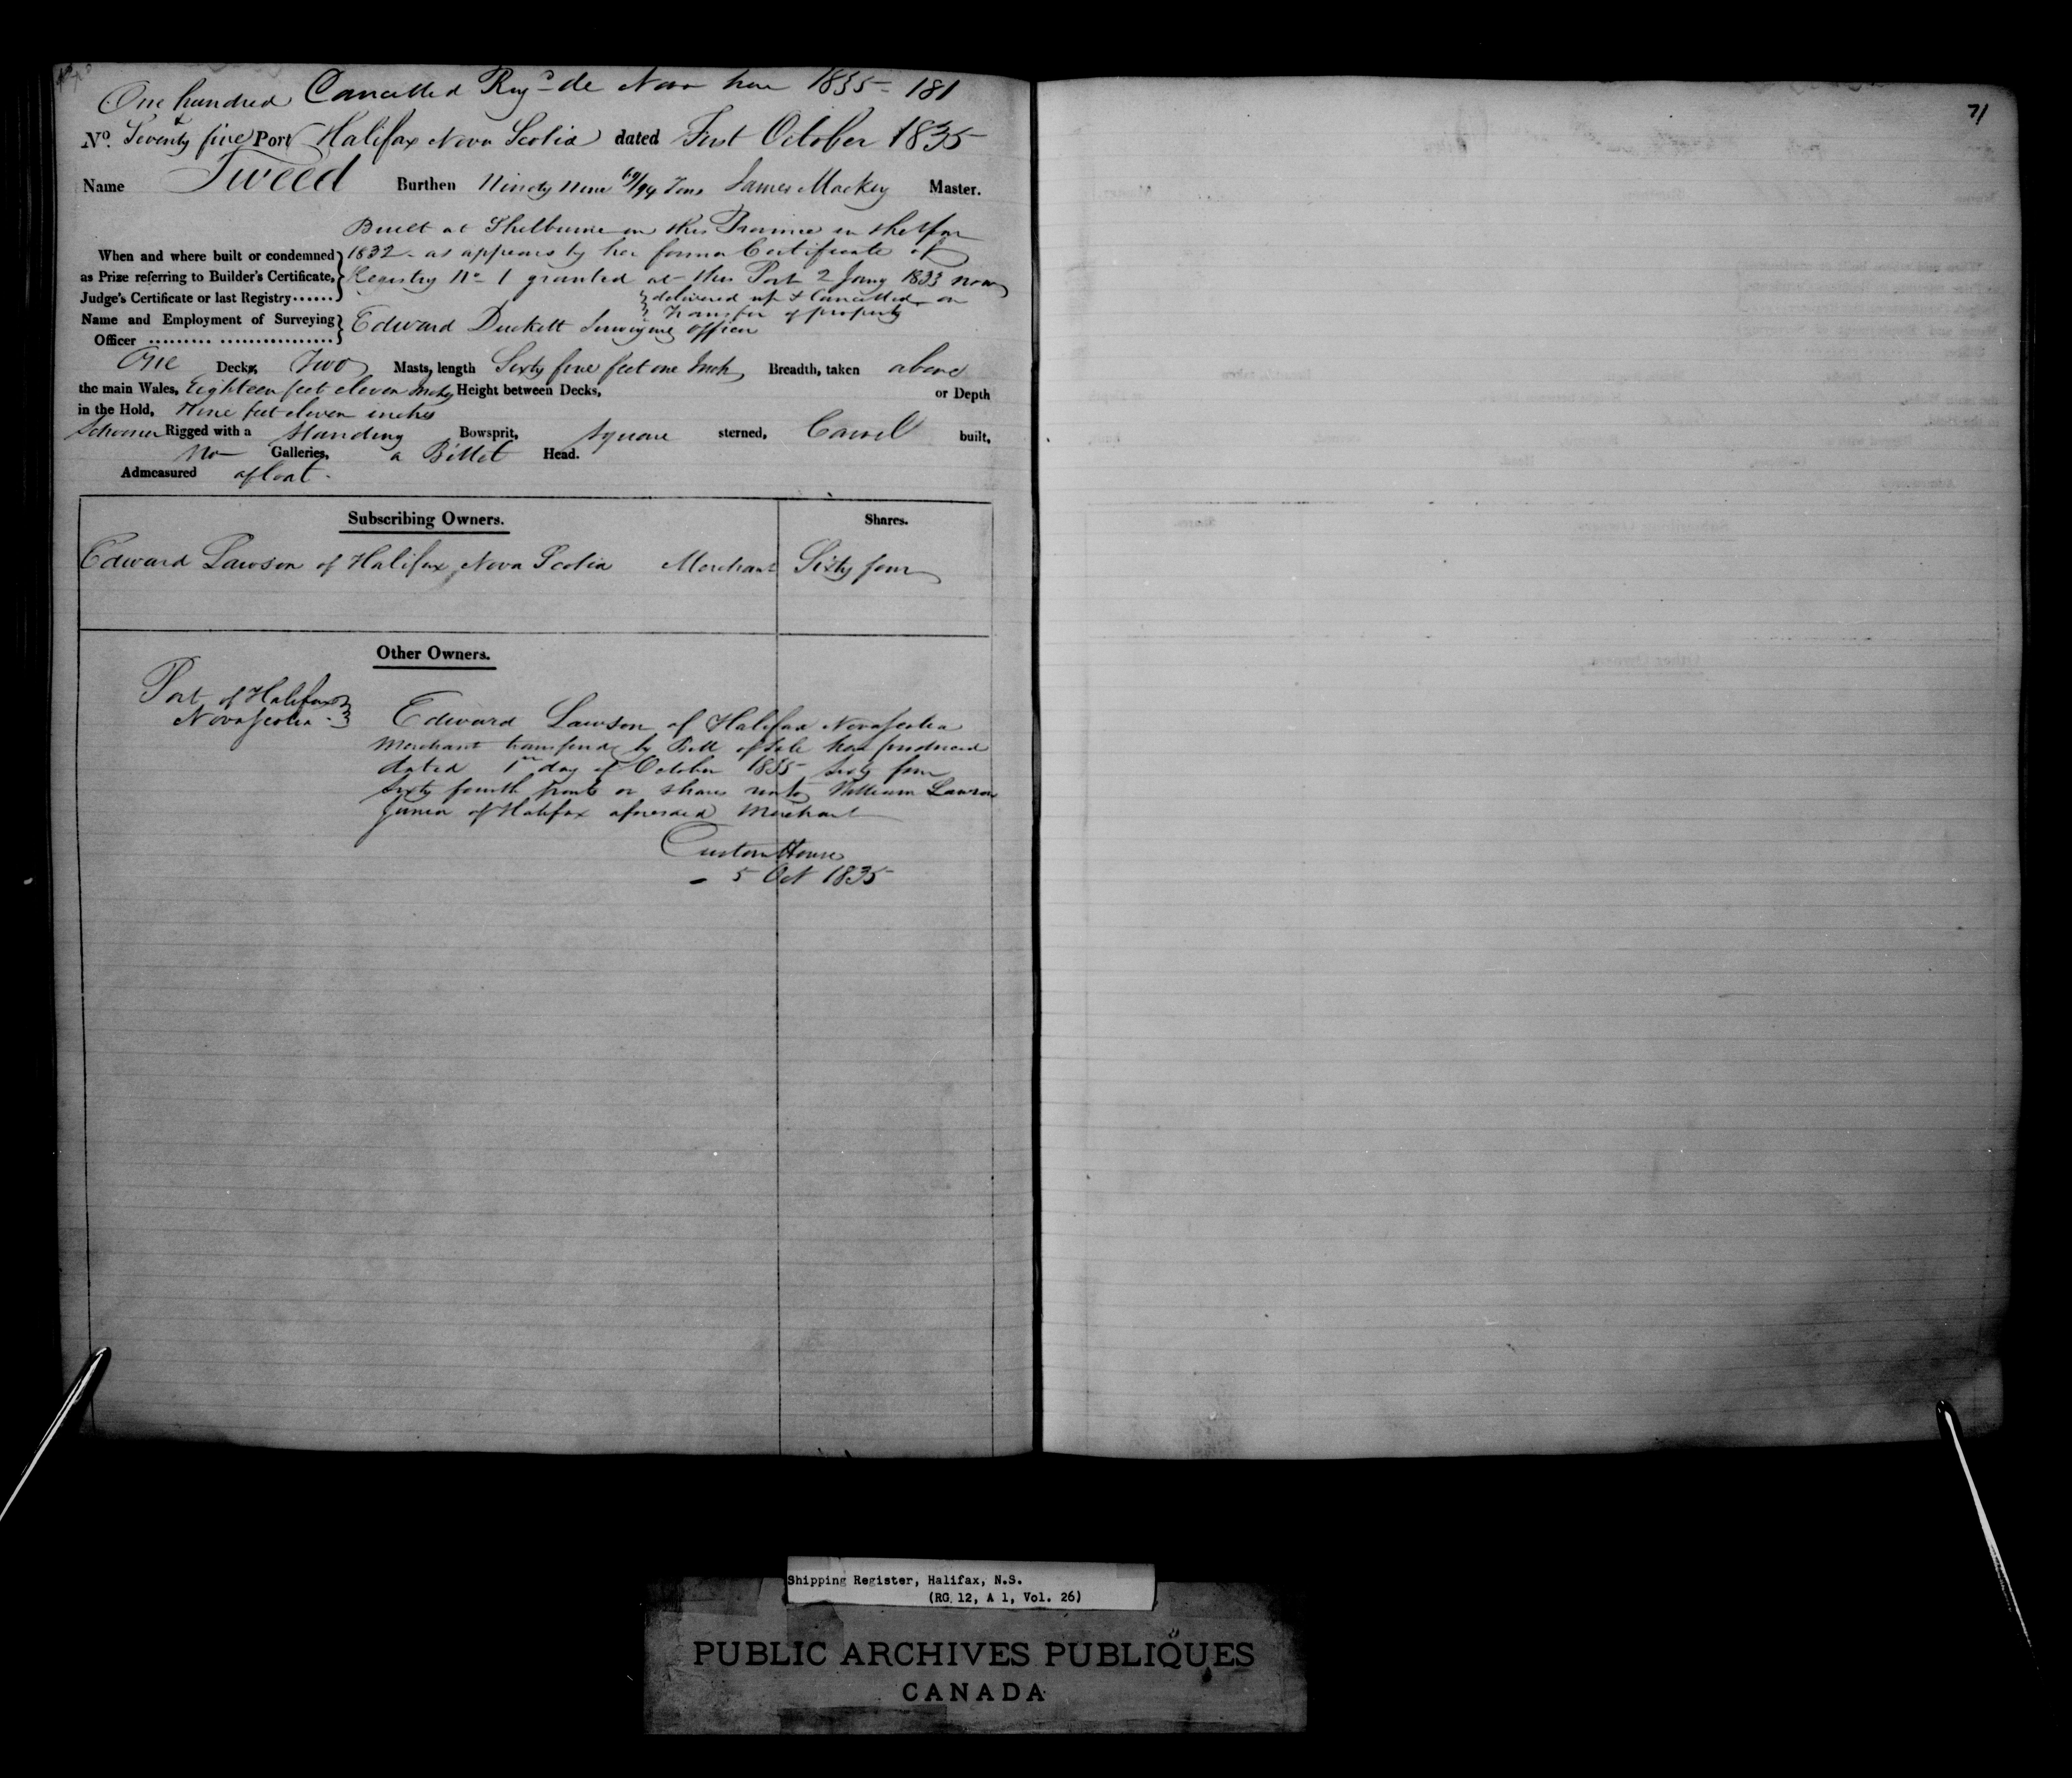 One hundred Cancelled Reg'd de Novo here 1835 - 181
No. & Seventy five Port Halifax Nova Scotia dated First October 1835
Name Tweed Burthen Ninety Nine 69/94 Tons James Mackey Master.
Built at Shelburne in this Province in the Year
When and where built or condemned 1832 - as appears by her former Certificate of
as Prize referring to Builder's Certificate, Registry No 1 granted at this Port 2 Jany 1833 now
Judge's Certificate or last Registry...... delivered up & Cancelled on
Transfer of property
Name and Employment of Surveying
Officer ......... ................ Edward Duckett Surveying officer
One Decks, Two Masts, length Sixty five feet one Inch, Breadth, taken above
the main Wales, Eighteen feet eleven Inches Height between Decks, or Depth
in the Hold, Nine feet eleven inches
Schooner Rigged with a Standing Bowsprit, Square sterned, Carvel built,
No Galleries, a Billet Head.
Admeasured afloat -
Subscribing Owners. Shares.
Edward Lawson of Halifax Nova Scotia Merchant Sixty four
Other Owners.
Port of Halifax
Nova Scotia -
Edward Lawson of Halifax Nova Scotia
Merchant transferred by Bill of Sale here produced
dated 1st day of October 1835 Sixty four
Sixty fourth parts or shares unto William Lawson
Junior of Halifax aforesaid Merchant
Custom House
- 5 Oct 1835
71
Shipping Register, Halifax, N.S.
(RG 12, A 1, Vol. 26)
PUBLIC ARCHIVES PUBLIQUES
CANADA